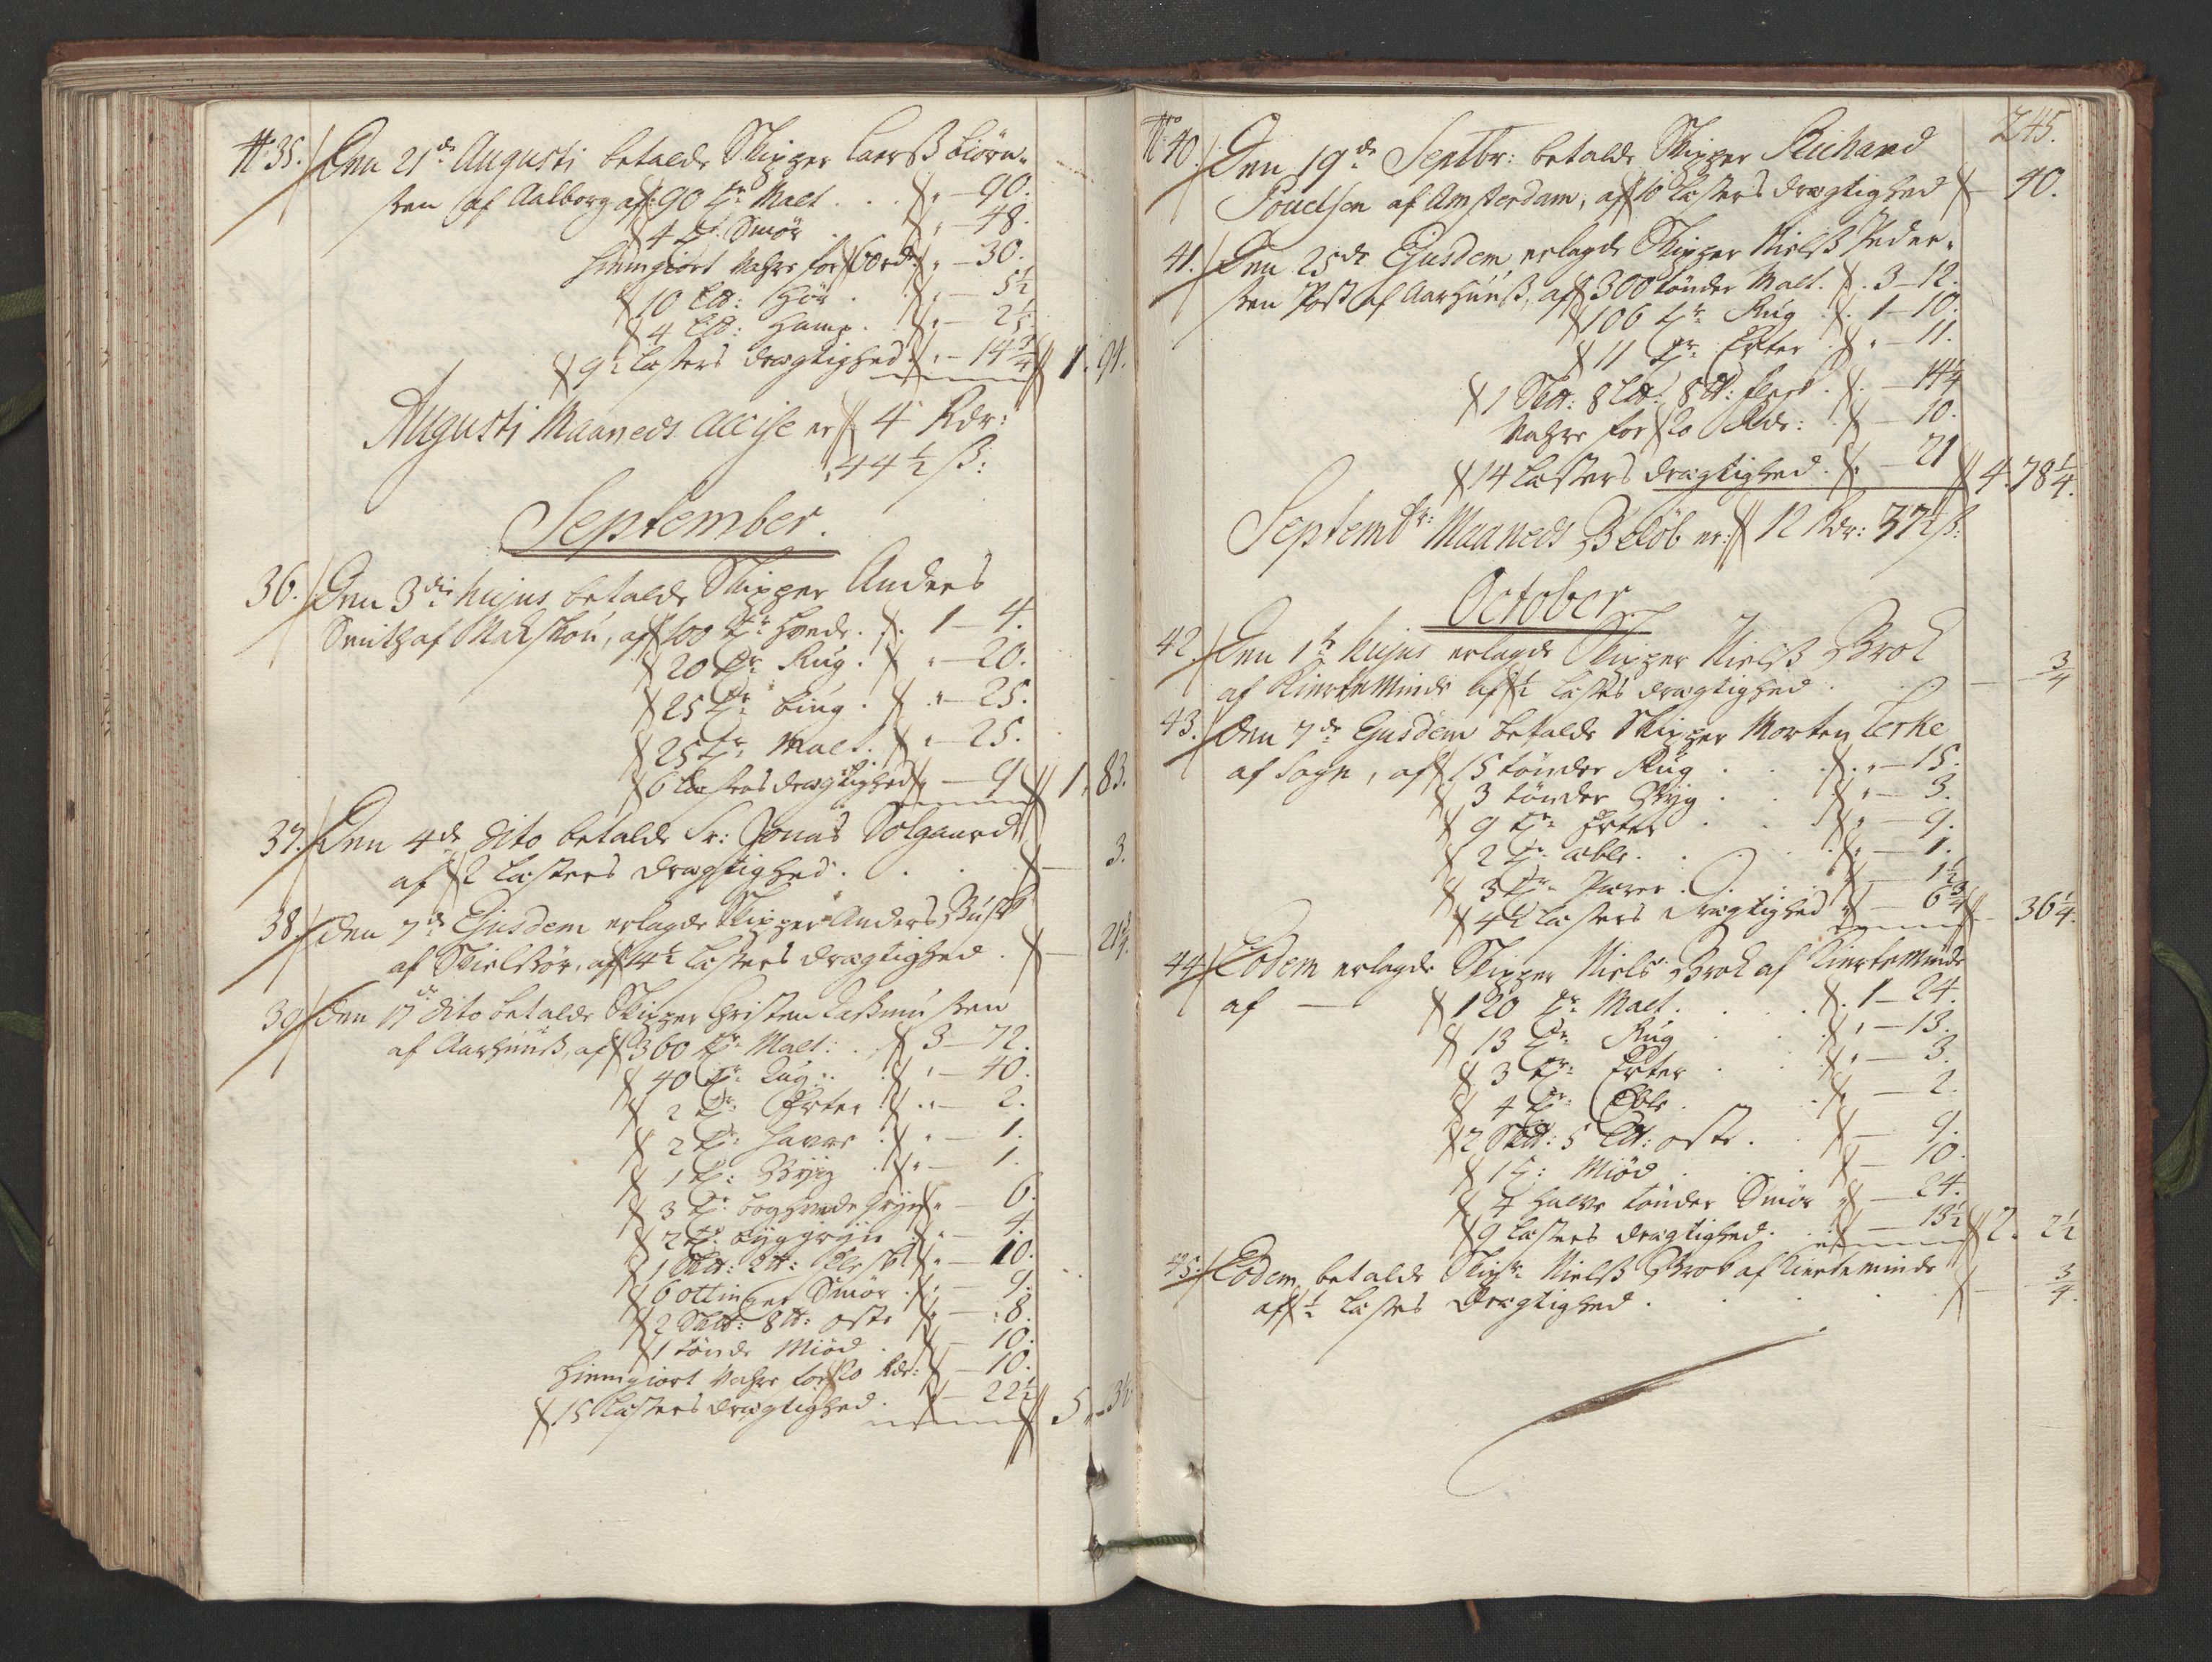 No 35. Den 21de Augusti betalde Skipper Laerss biörn-
sen af Aalborg af 90 tr Malt . . . " - 90.
4 tr. Smör . " - 48.
hiemgiort Vahre for 60 rd: " - 30.
10 Ltt: Hör . . " - 5½
4 Ltt: Hamp . . " - 2½
9½ Lesters drægtighed . " - 14¾ 1. 94.
Augusti Maaneds accise er 4 Rdr:
44½ ß:
September.
36. Den 3die hujus betalde Skipper Anders
Smith af Nakskou, af 100 tr Hvede . . 1 - 4.
20 tr Rug . " - 20.
25 tr biug . " - 25.
25 tr. Malt . " - 25.
6 Lesters drægtighed " - 9 1. 83.
37. Den 4de dito betalde Sr: Jonas Solgaard
af 2 Lesters drægtighed . . . . - 3.
38. Den 7de Ejusdem erlagde Skipper Anders Busk
af Skielskör, af 14½ Lesters drægtighed . - 21¾.
39. Den 17de dito betalde Skipper Christen Rasmussen
af Aarhuuss, af 360 tr Malt: . . 3 - 72.
40 tr Rug . . " - 40.
2 tr Erter . " - 2.
2 tr: Havre . " - 1.
1 tr: Byg . " - 1.
3 tr boghvede gryn " - 6.
2 tr. byggryn . " - 4.
1 Sktt: 2 tt: Flesk " - 10.
6 ottinger Smör . " - 9.
2 Skttt: 8 tt: oste " - 8.
1 tönde Miöd . " - 10.
hiemgiort Vahre for 20 Rdr: - 10.
15 Lesters drægtighed . " - 22½ 5. " 3½.
245.
No 40. Den 19de Septbr: betalde Skipper Richard
Pouelsen af Amsterdam, af Lesters drægtighed - 90.
41. Den 25de Ejusdem, erlagde Skipper Nielss Peder-
sen Post af Aarhuuss, af 300 tönder Malt . . 3 - 12.
106 tr Rug . . 1 - 10.
11 tr Erter . " - 11.
1 Sktt: 8 Ltt: 8 tt: flesk . . - 14¼
Vahre for 20 Rdr: . - 10.
14 Lesters drægtighed . " - 21 4. 78¼.
Septembr: Maaneds Belöb er: 12 Rdr: 37½ ß:
October.
42. Den 1te hujus erlagde Skipper Nielss Brok
af Kierteminde af ½ Lestes drægtighed . . - ¾
43. Den 7de Ejusdem betalde Skipper Morten Lerke
af Sogn, af 15 tönder Rug . . . " - 15.
3 tönder Byg . . " - 3.
9 tr Erter . . " - 9.
2 tr æble . . . " - 1.
3 tr Pærer . . . - 1½
4½ Lesters drægtighed " - 6¾ - 36¼.
44. Eodem erlagde Skipper Niels Brok af Kierteminde
af — 120 tr Malt . . . . 1 - 24.
13 tr Rug . . " - 13.
3 tr Erter . . " - 3.
4 tr Eble . . " - 2.
2 Sktt: 5 Ltt: oste . . - 9.
1 tr: Miöd . . . - 10.
4 halve tönder Smör " - 24.
9 Lesters drægtighed . . - 13½ 2. 2½
45. Eodem betalde Skipr. Nielss Brok af Kierteminde
af ½ Lestes drægtighed . . . - ¾.